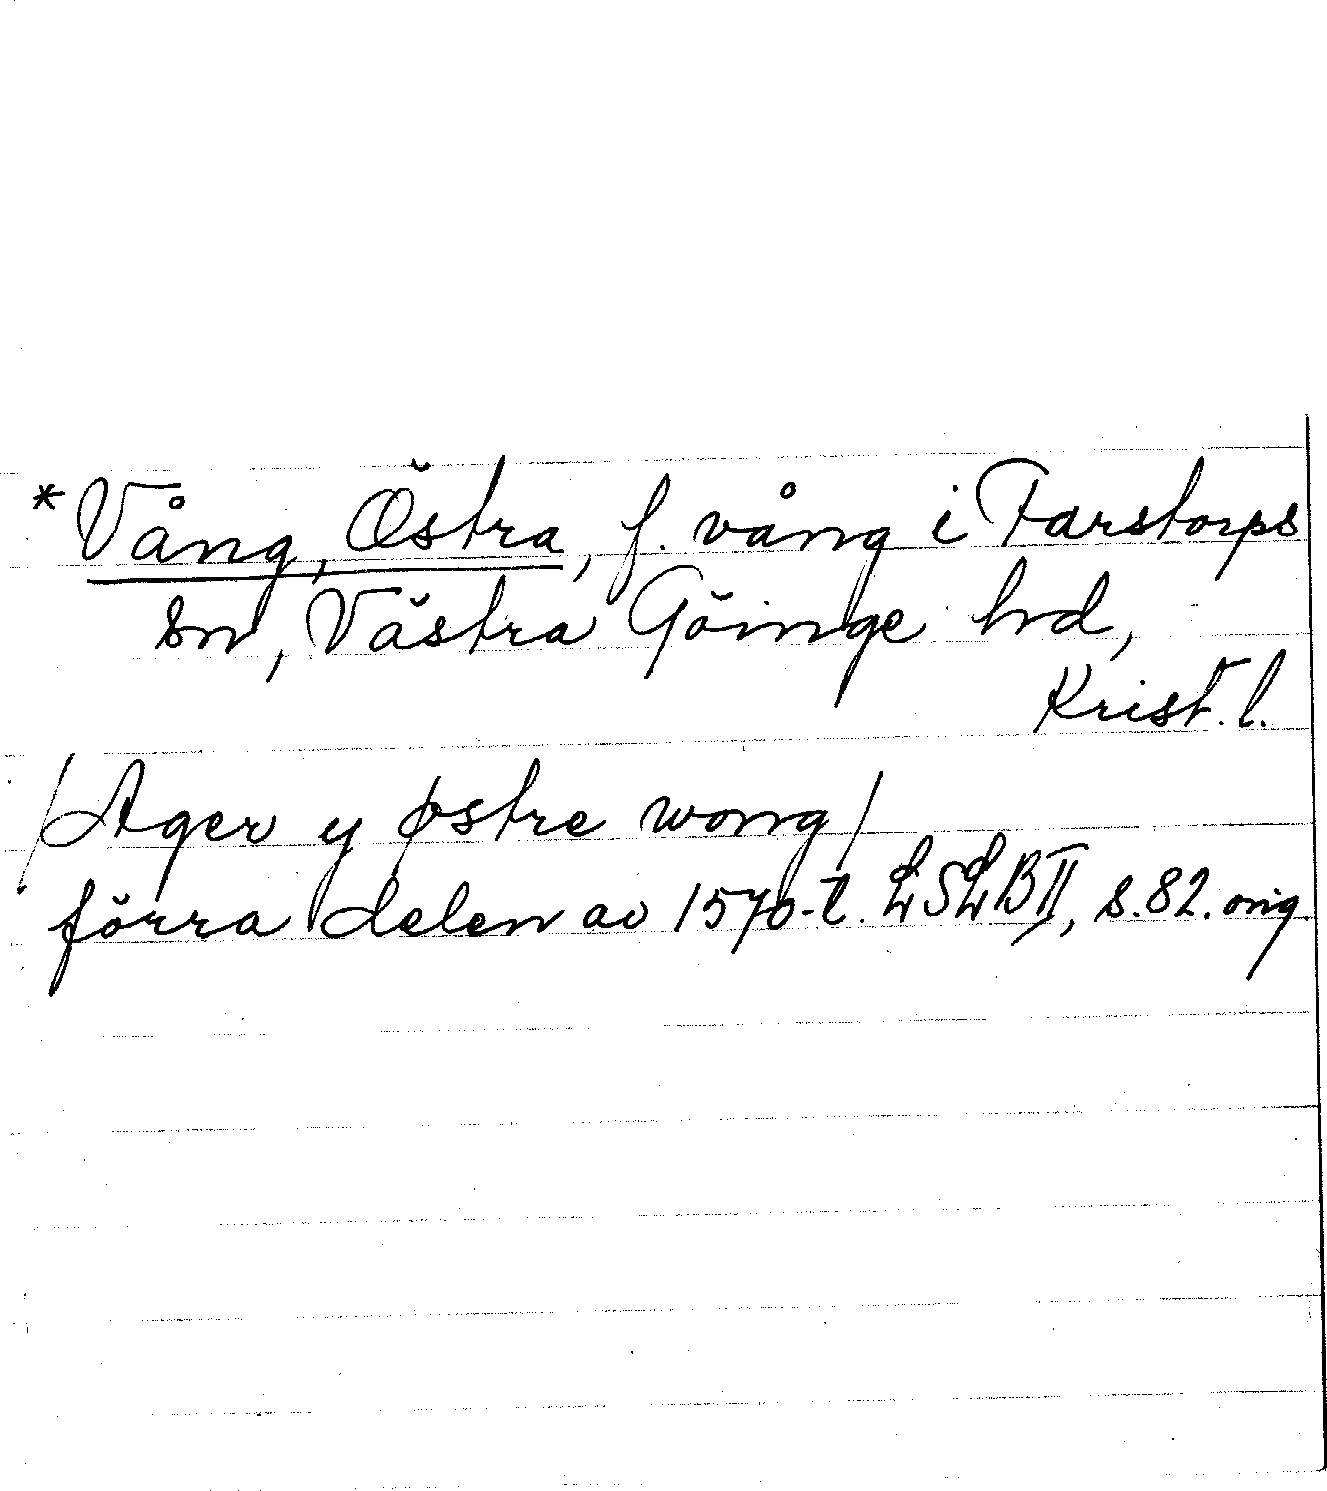 *Vång, Östra, f. vång i Farstorps
sn, Västra Göinge hd,
Krist. l.
/Ager y østre wong/
förra delen av 1570-t. LSLB II, s. 82. orig.